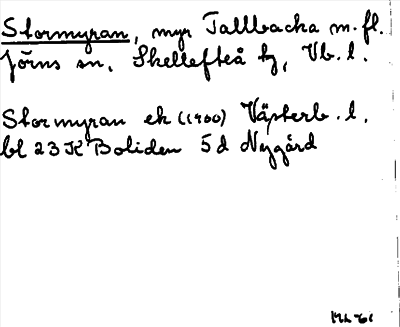 Stormyran, myr Tallbacka m.fl.
Jörns sn, Skellefteå tg, Vb. l.
Stormyran ek (1900) Västerb. l.
bl 23 K Boliden 5 d Nygård